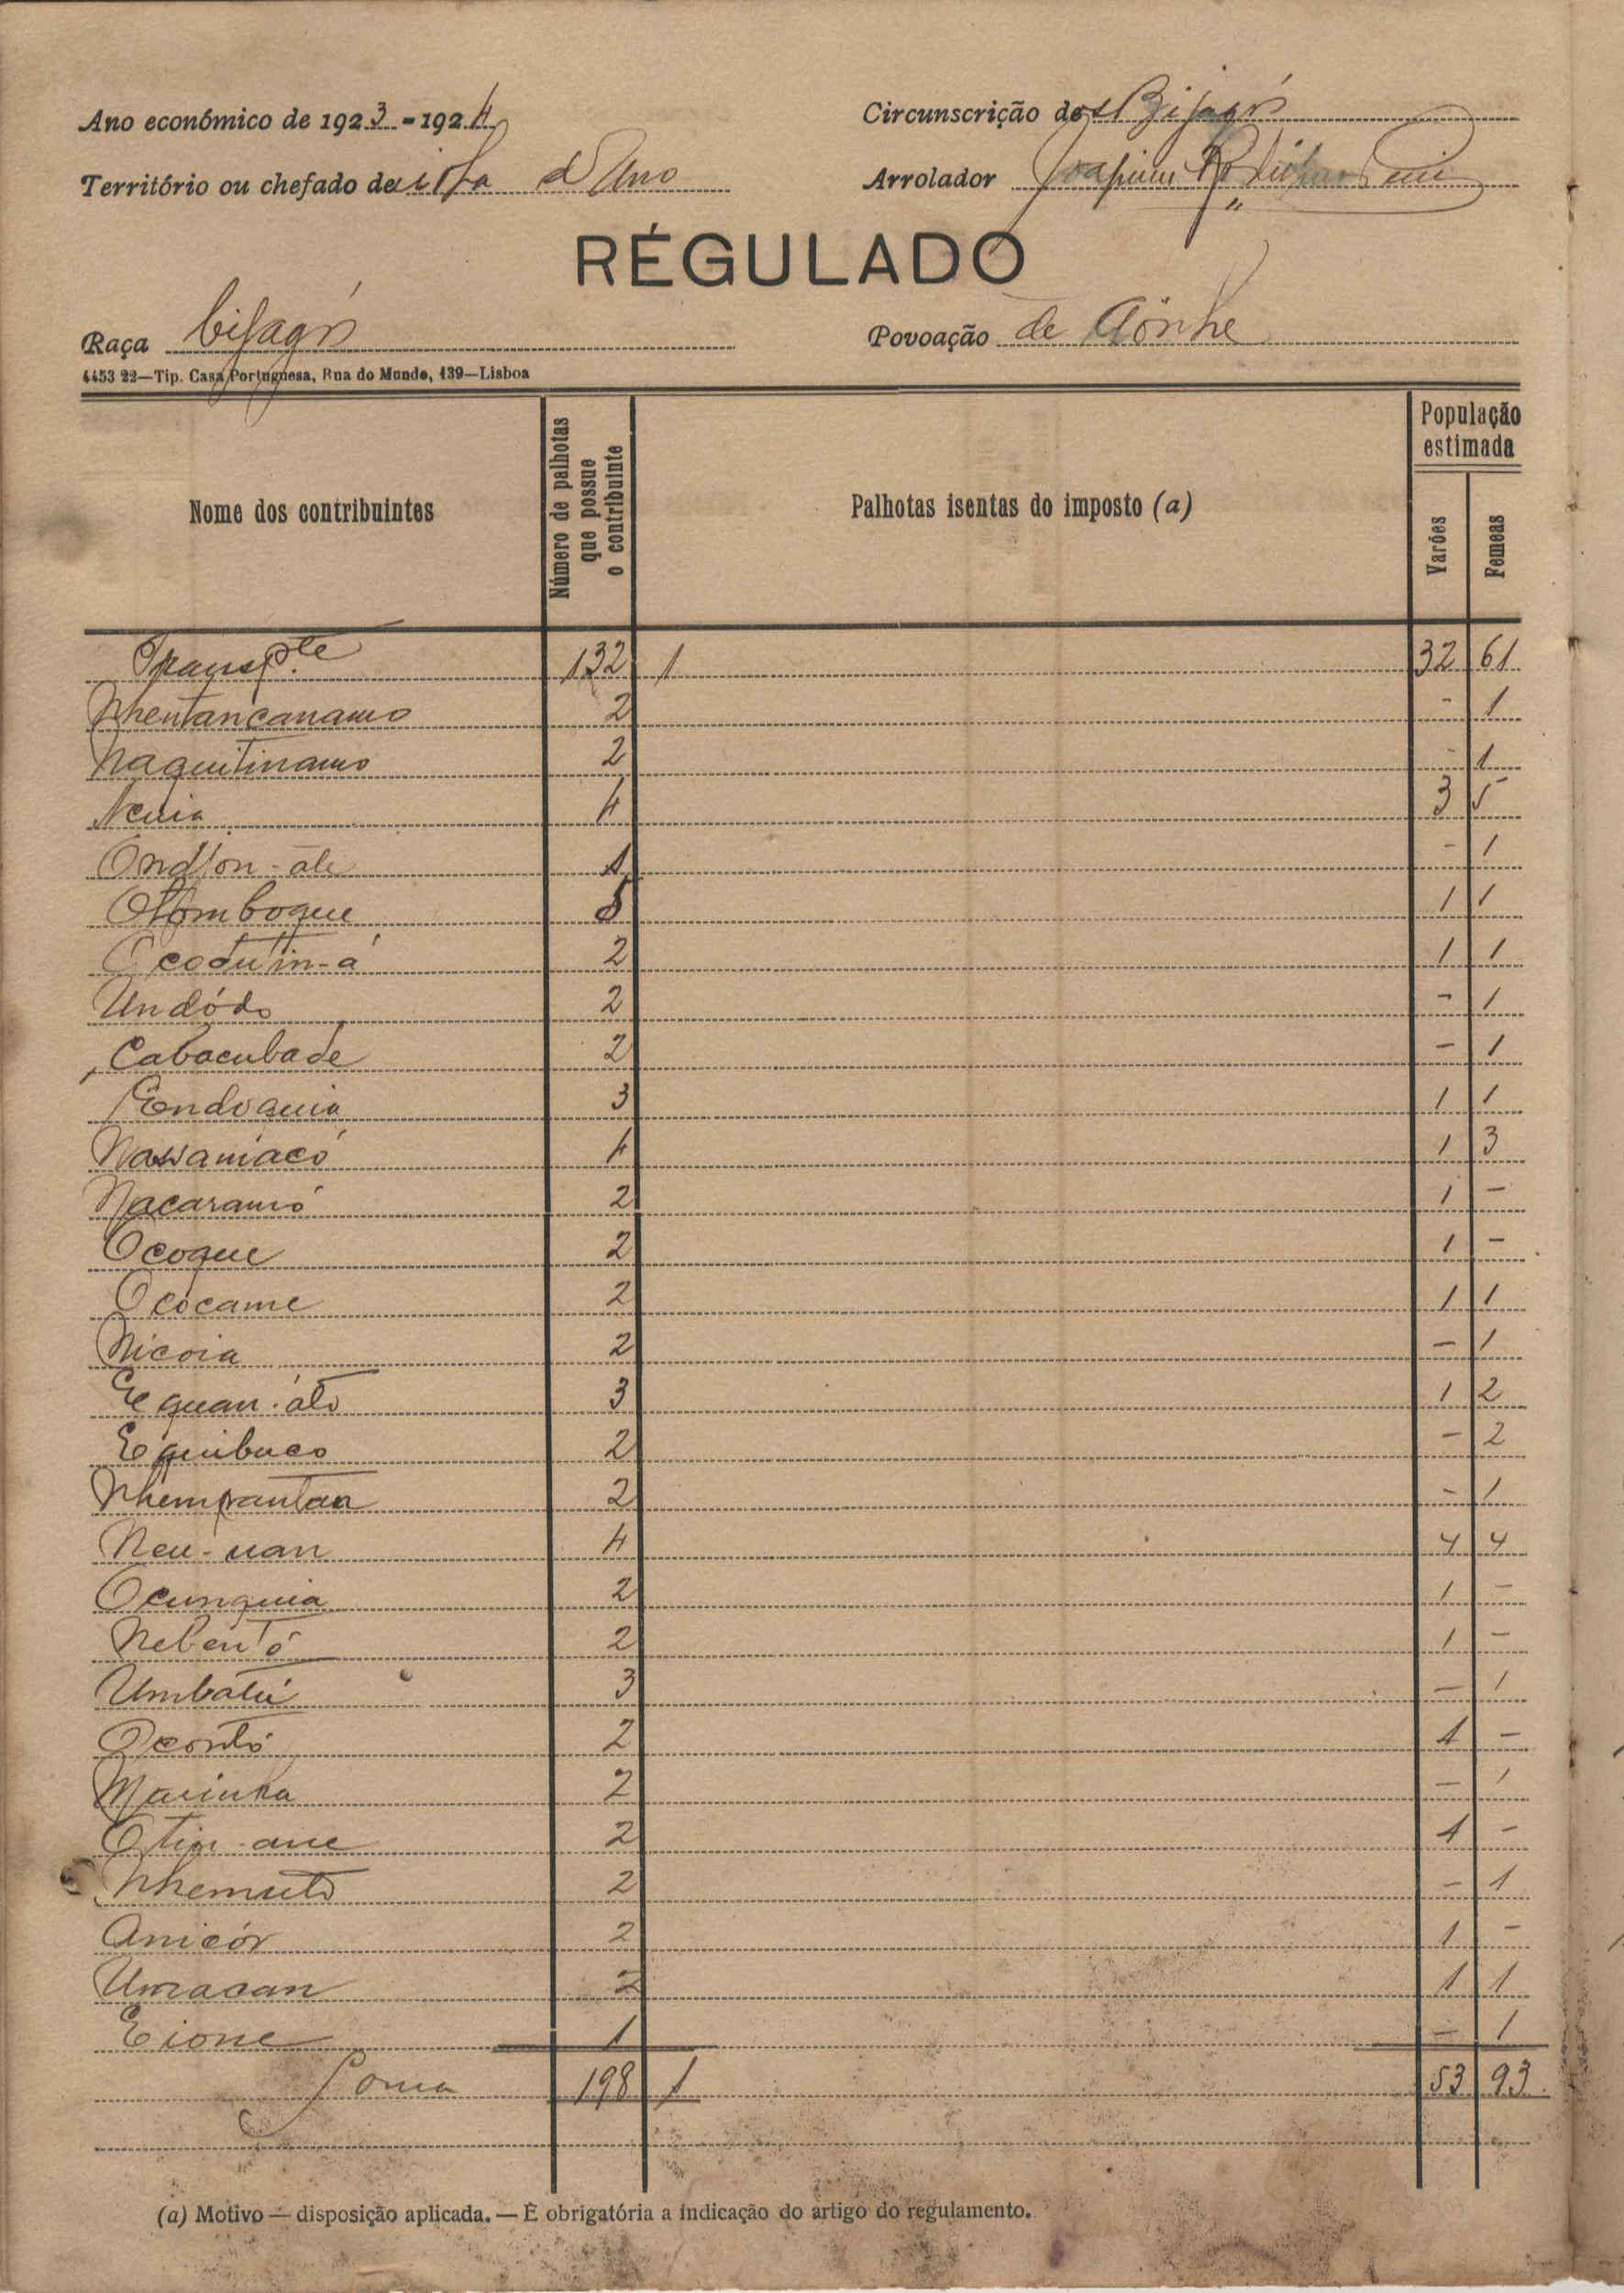 Ano económico de 1923-1924
Circunscrição dos Bijagós
Território ou chefado de ilha d Uno
Arrolador Joaquim
RÉGULADO
Raça bijagós
Povoação de
4453 22—Tip. Casa Portuguesa, Rua do Mundo, 139—Lisboa
Nome dos contribuintes
Número de palhotas que possue o contribuinte
Palhotas isentas do imposto (a)
População estimada
Varões
Femeas
Transpte 132 1 32 61
Nhentancanamo 2 - 1
Naquitinamo 2 - 1
Neuia 4 3 5
1 - 1
Otomboque 5 1 1
2 1 1
Undódo 2 - 1
Cabacubade 2 - 1
Endoquia 3 1 1
4 1 3
Nacaramó 2 1 -
Ocoque 2 1 -
Ococame 2 1 1
Nicoia 2 - 1
Equan-áto 3 1 2
Equibuco 2 - 2
2 - 1
Neu-uan 4 4 4
Ocunquia 2 1 -
Nebentó 2 1 -
Umbatú 3 - 1
Ocontó 2 1 -
2 - 1
Otin-ane 2 1 -
Nhemuto 2 - 1
Anicór 2 1 -
Uracan 2 1 1
Eione 1 - 1
Soma 198 1 53 93
(a) Motivo — disposição aplicada. — É obrigatória a indicação do artigo do regulamento.